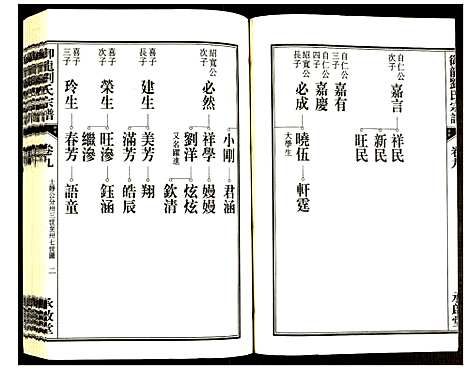 御龍劉氏宗譜
卷九
自仁公
次子
嘉言
祥民
新民
旺民
自仁公
三子
嘉有
自仁公
四子
嘉慶
紹寬公
長子
必成
曉伍
軒霆
大學生
小剛
君涵
紹寬公
次子
必然
祥學
嫚嫚
劉洋
炫炫
又名躍進
欽清
喜子
長子
建生
美芳
翔
滿芳
皓辰
喜子
次子
榮生
旺滲
鈺涵
繼滲
喜子
三子
玲生
春芳
語童
御龍劉氏宗譜
卷九
二